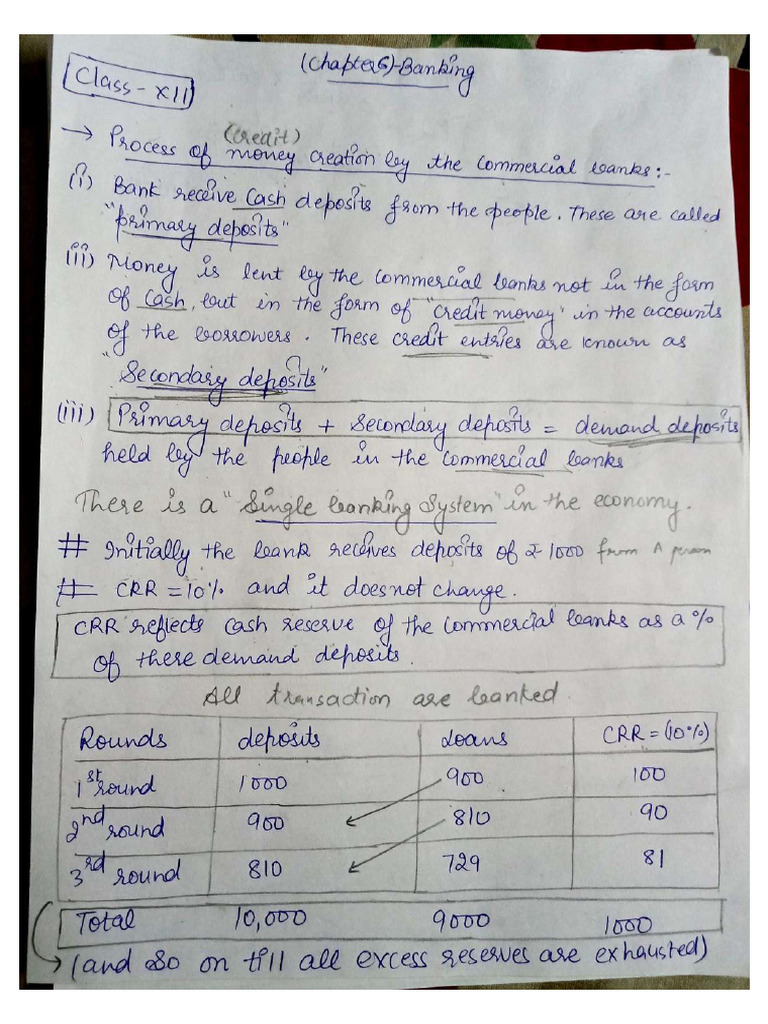 (Chapter6)-Banking
Class-XII
(Credit)
→ Process of money creation by the commercial banks:-
(i) Bank receive cash deposits from the people. These are called
"primary deposits"
(ii) Money is lent by the commercial banks not in the form
of cash, but in the form of "credit money" in the accounts
of the borrowers. These credit entries are known as
"Secondary deposits"
(iii) Primary deposits + Secondary deposits = demand deposits
held by the people in the commercial banks
There is a "Single banking system" in the economy.
# Initially the bank receives deposits of ₹1000 from A person
# CRR = 10% and it does not change.
CRR reflects cash reserve of the commercial banks as a %
of these demand deposits.
All transaction are banked.
Rounds deposits Loans CRR = (10%)
1st round 1000 900 100
2nd round 900 810 90
3rd round 810 729 81
Total 10,000 9000 1000
→ (and so on till all excess reserves are exhausted)